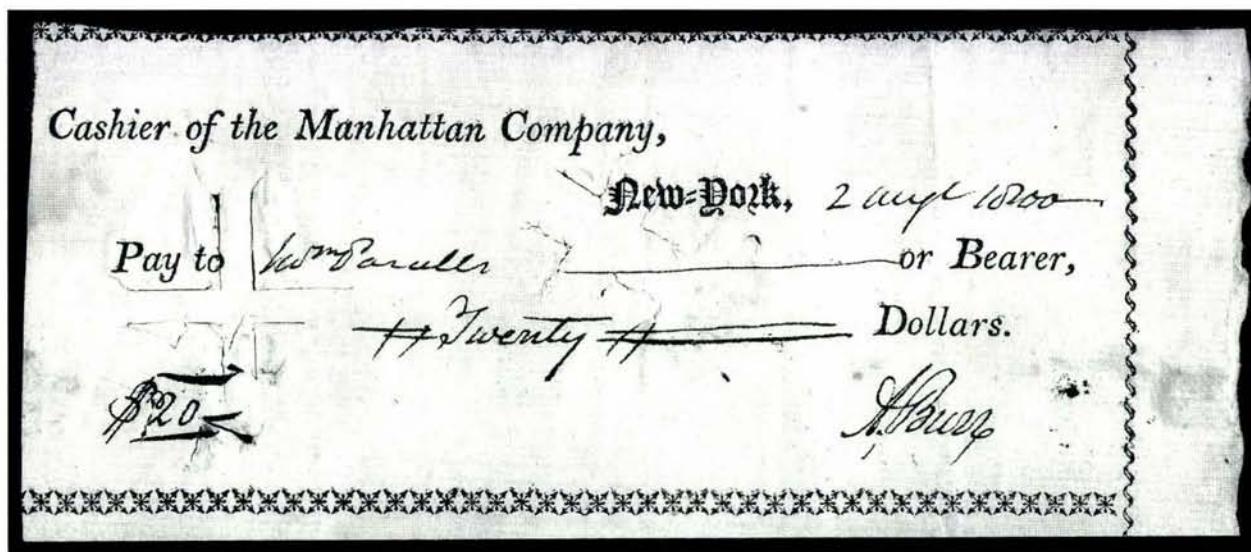 Cashier of the Manhattan Company,
New-York, 2 augt 1800
Pay to Wm or Bearer,
Twenty Dollars.
$20
A. Burr